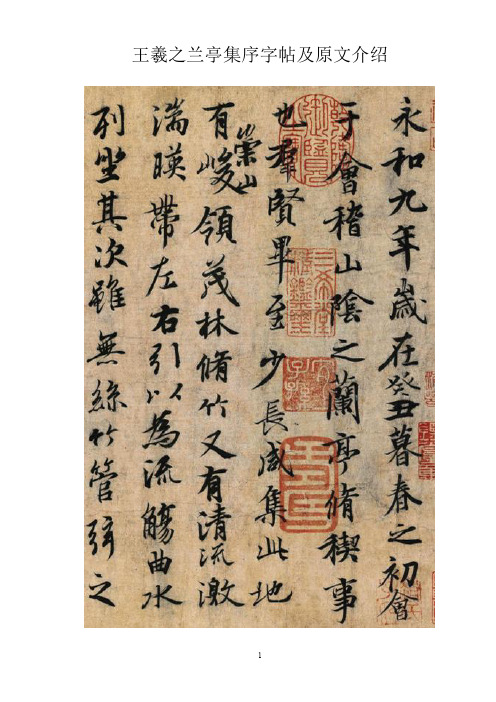 王羲之兰亭集序字帖及原文介绍
永和九年歲在癸丑暮春之初會
于會稽山陰之蘭亭脩稧事
也羣賢畢至少長咸集此地
有崇山峻領茂林脩竹又有清流激
湍暎帶左右引以為流觴曲水
列坐其次雖無絲竹管弦之
1